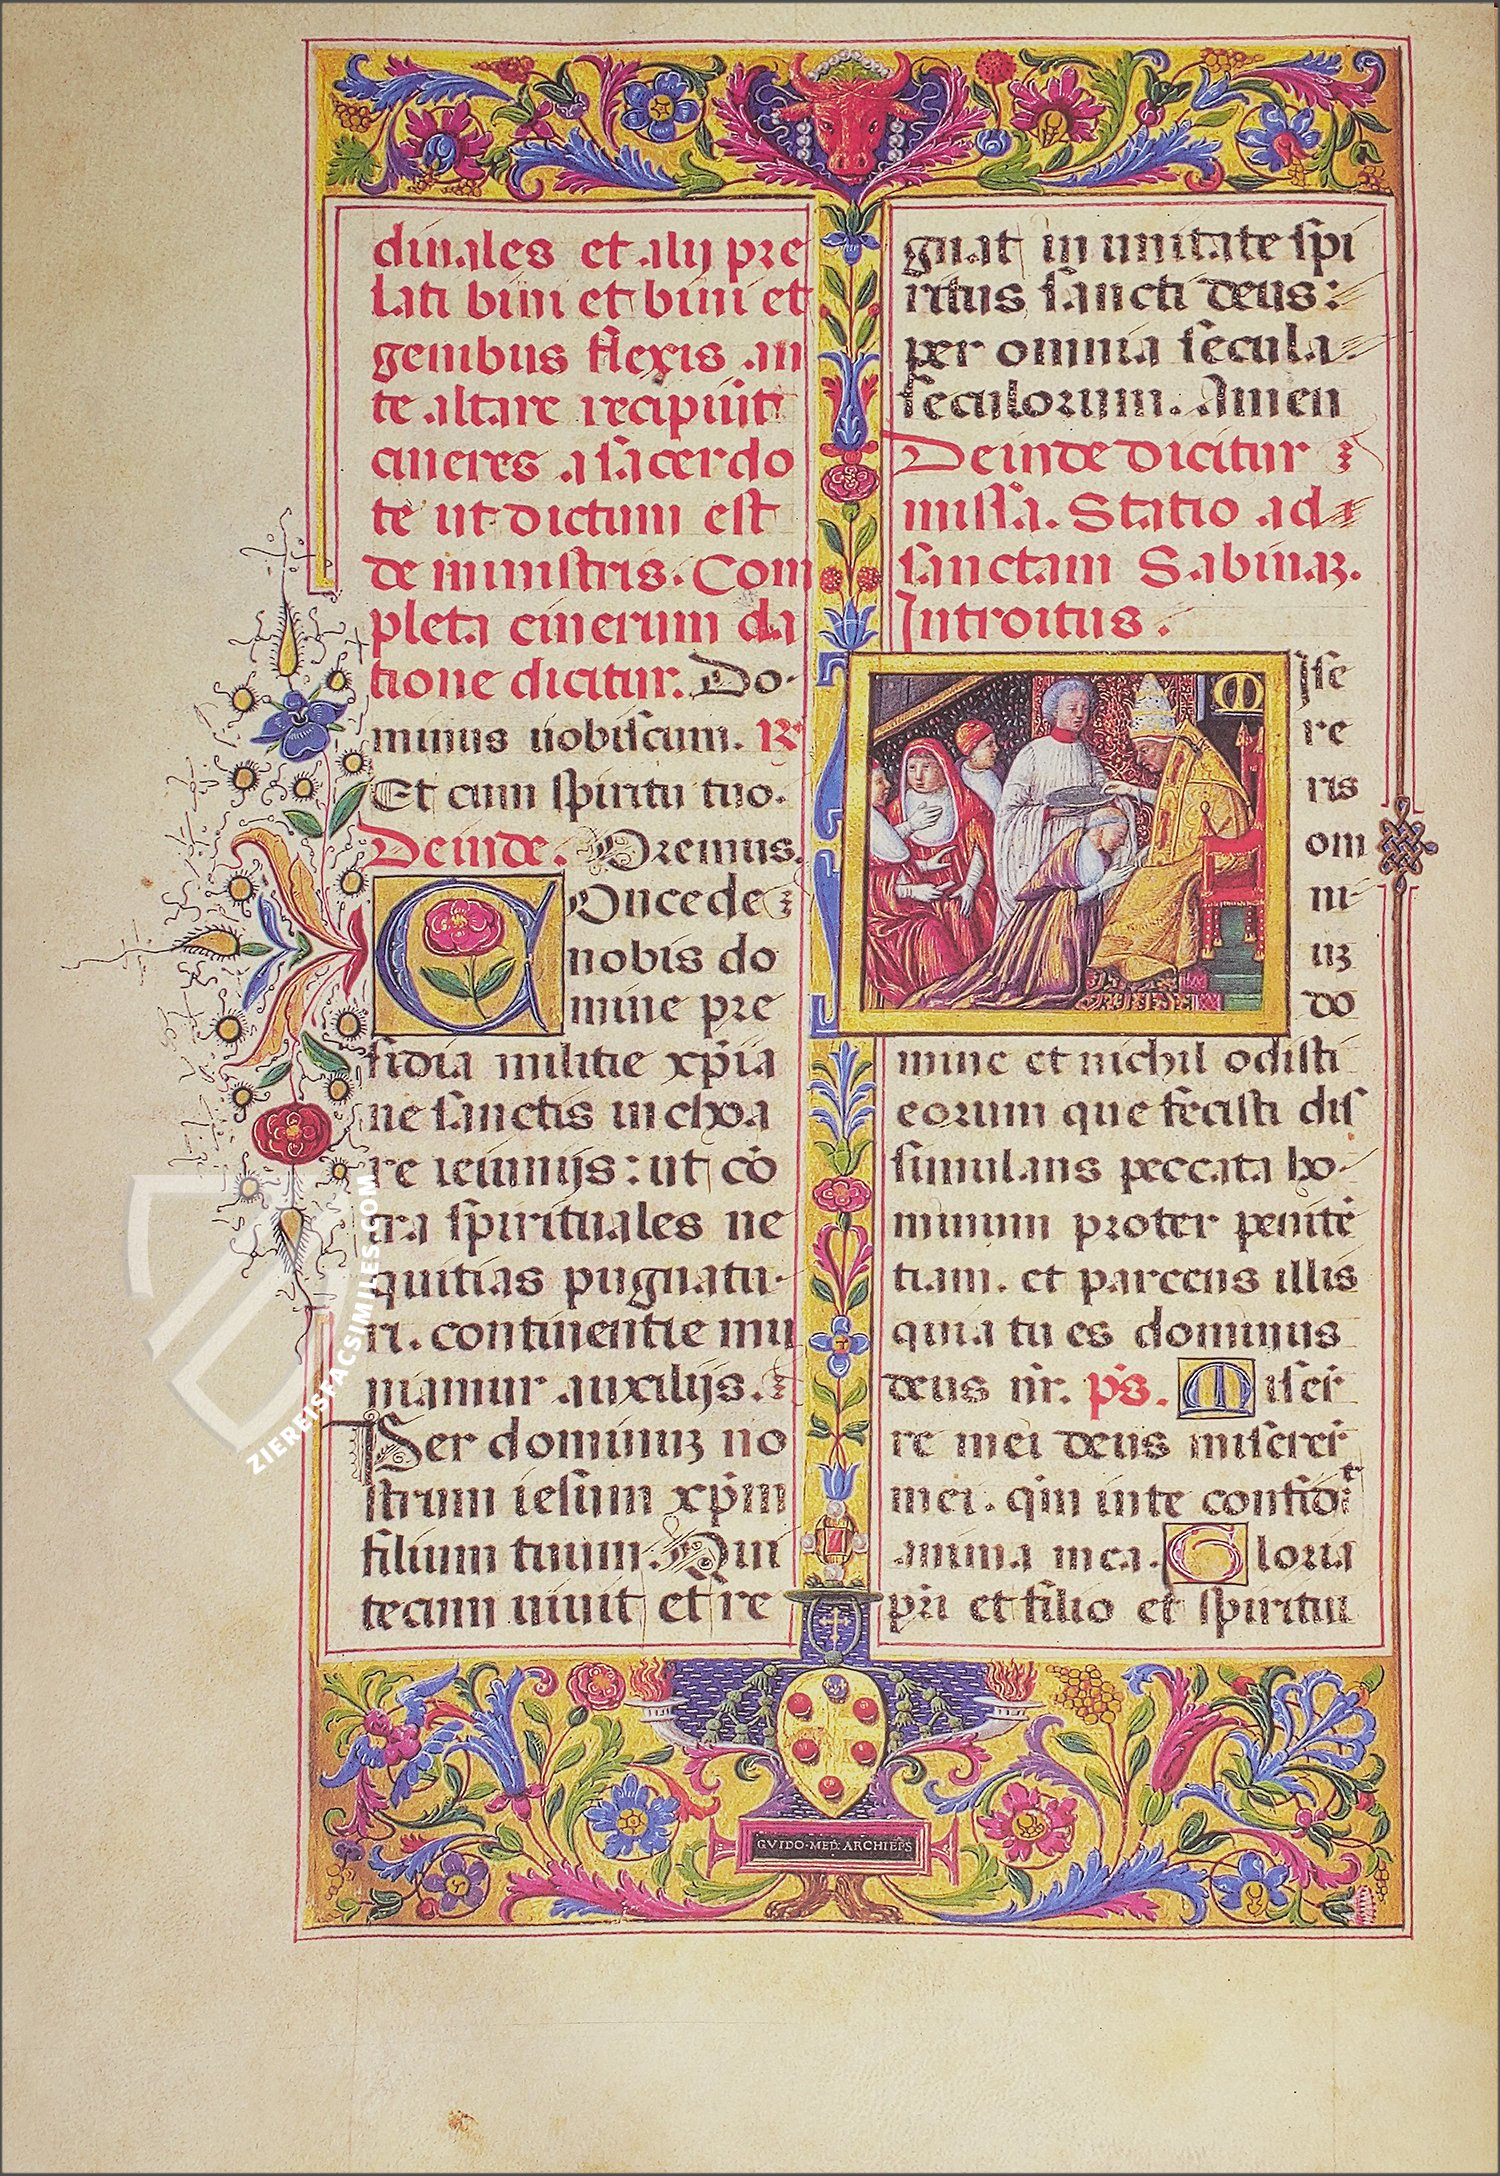 dinales et alij pre
lati bini et bini et
genibus flexis an
te altare recipiūt
cineres a sacerdo
te ut dictum est
de ministris. Com
pleta cinerum da
tione dicitur. Do-
minus uobiscum. R
Et cum spiritu tuo.
Deinde. Oremus.
Concede
nobis do
mine pre
sidia militie xp̄ia
ne sanctis inchoa
re ieiunijs: ut cō
tra spirituales ne
quitias pugnatu-
ri. continentie mu
niamur auxilijs.
Per dominuz no
strum iesum xp̄m
filium tuum. Qui
tecum uiuit et re
gnat in unitate spi
ritus sancti deus:
per omnia secula.
seculorum. Amen
Deinde dicitur
missa. Statio ad
sanctam Sabinaz.
Introitus.
M
ise
re
ris
om
ni-
uz
do
mine et nichil odisti
eorum que fecisti dis
simulans peccata ho-
minum proter penitē
tiam. et parcens illis
quia tu es dominus
deus nr̄. ps. Miser̄
re mei deus miserer̄
mei. qm̄ in te confidit
anima mea. Gloria
pri et filio et spiritui
GVIDO·MED. ARCHIEPS
ZIEREISFACSIMILES.COM